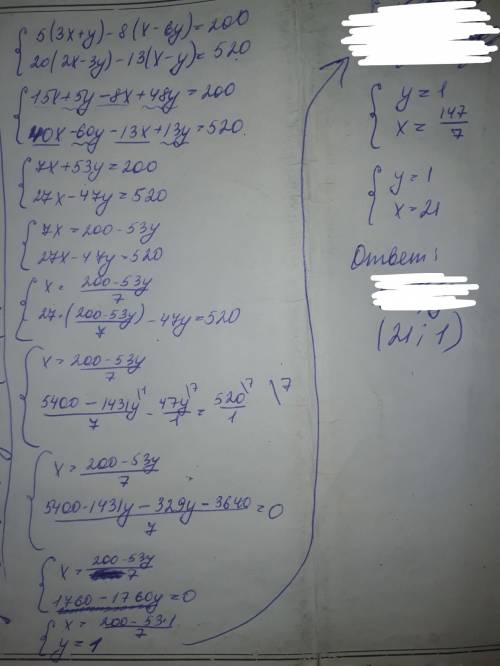 5(3x+y)-8(x-6y)=200
20(2x-3y)-13(x-y)=520
15x+5y-8x+48y=200
40x-60y-13x+13y=520
7x+53y=200
27x-47y=520
7x=200-53y
27x-47y=520
x= 200-53y/7
27·(200-53y/7)-47y=520
x= 200-53y/7
5400-1431y\1/7 - 47y\7/1 = 520\7/1 \7
x= 200-53y/7
5400-1431y-329y-3640/7=0
x= 200-53y/7
1760-1760y=0
x= 200-53·1/7
y=1
y=1
x= 147/7
y=1
x=21
Ответ:
(21; 1)